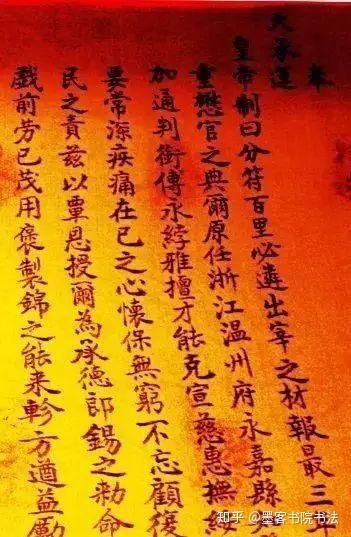 奉
天承運
皇帝制曰分符百里必遴出宰之材報最三年
重懋官之典爾原任浙江温州府永嘉縣
加通判銜傅永綍雅擅才能克宣慈惠撫綏
要常深疾痛在已之心懷保無窮不忘顧復
民之責兹以覃恩授爾為承德郎錫之勅命
戲前劳已茂用褒製錦之能来軫方遒益勵
知乎 @墨客书院书法